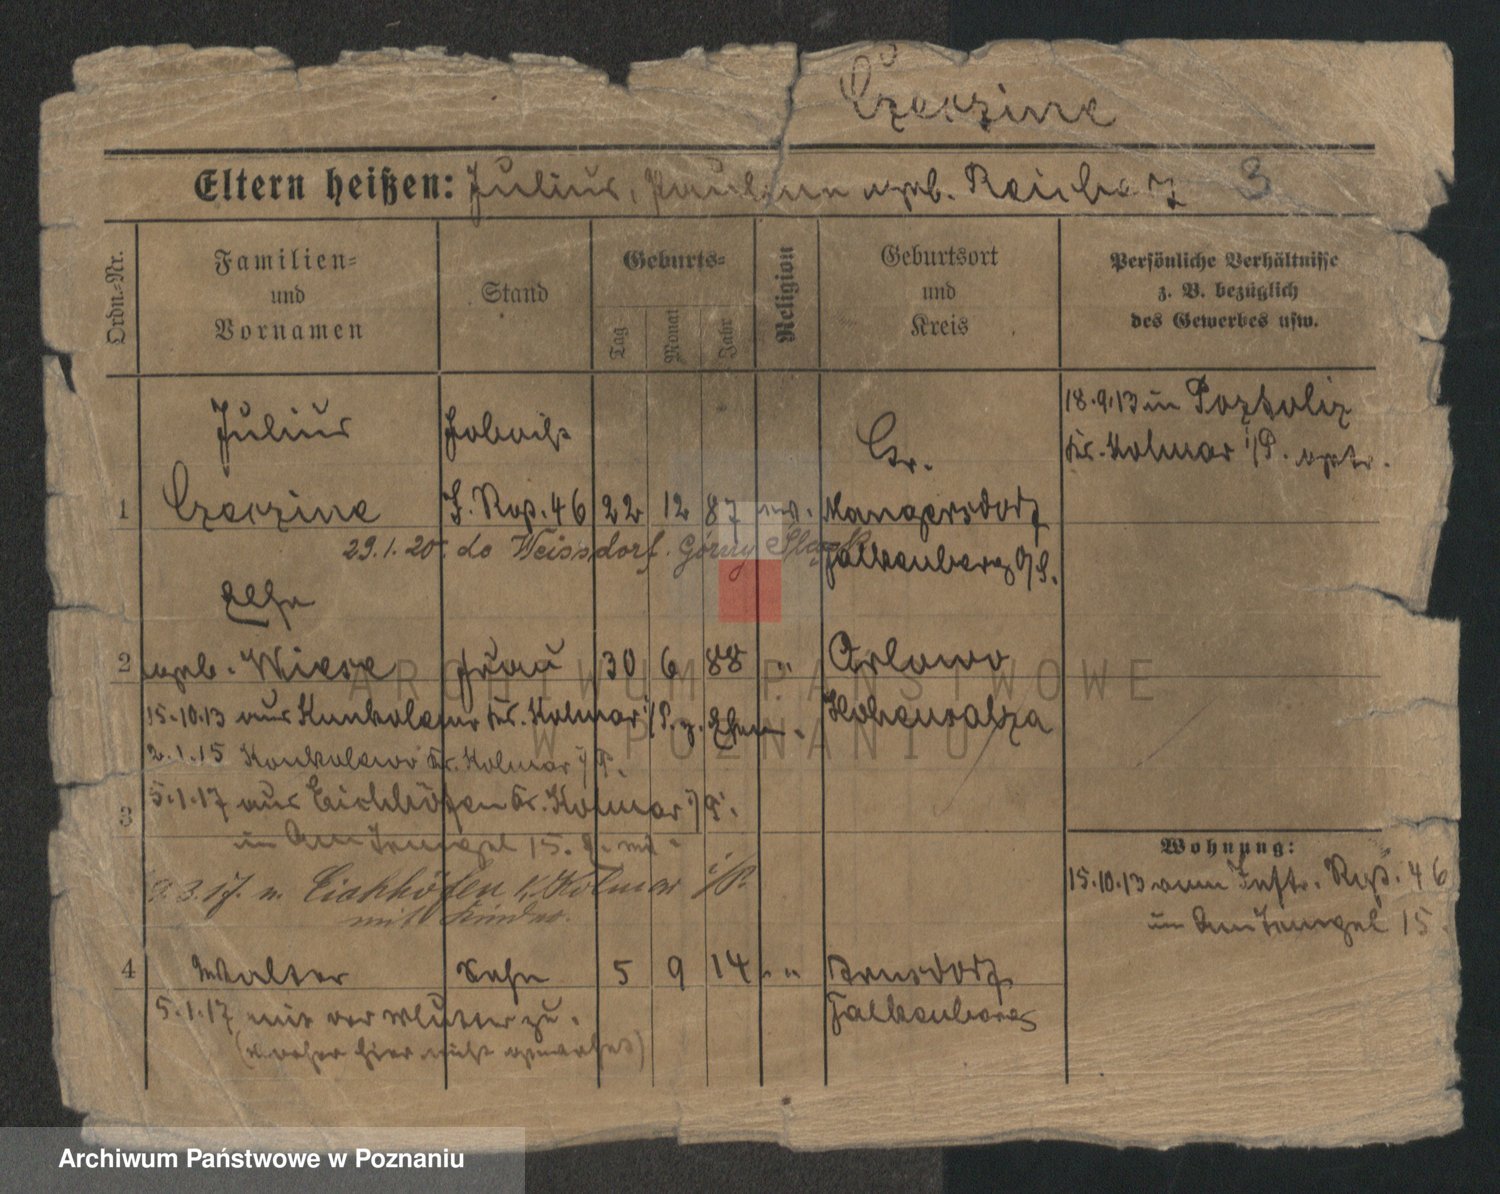 Czeczine
Eltern heißen: Julius, Pauline geb. 3
Ordn.-Nr.
Familien- und Vornamen
Stand
Geburts-
Tag
Monat
Jahr
Religion
Geburtsort und Kreis
Persönliche Verhältnisse
z. B. bezüglich
des Gewerbes usw.
18.9.13 in
Kr. Kolmar i/P.
Julius
Gr.
1 Czeczine J. Rgt. 46 22 12 87 ev. Mangersdorf
29.1.20. do Weissdorf. Górny Śląsk
Falkenberg O/S.
Else
2 geb. Wiese Frau 30 6 88 " Orlowo
15.10.13 aus Kr. Kolmar i/P. z.
Hohensalza
2.1.15 Kr. Kolmar i/P.
3 5.1.17 aus Eichhöfen Kr. Kolmar i/P.
15.
9.3.17. n. Eichhöfen K. Kolmar i/P.
mit Kinder.
Wohnung:
15.10.13 vom Inftr. Rgt. 46
15.
4 Walter Sohn 5 9 14 "
5.1.17 mit der Mutter zu.
Falkenberg
(vorher hier nicht gemeldet)
ARCHIWUM PAŃSTWOWE
W POZNANIU
Archiwum Państwowe w Poznaniu